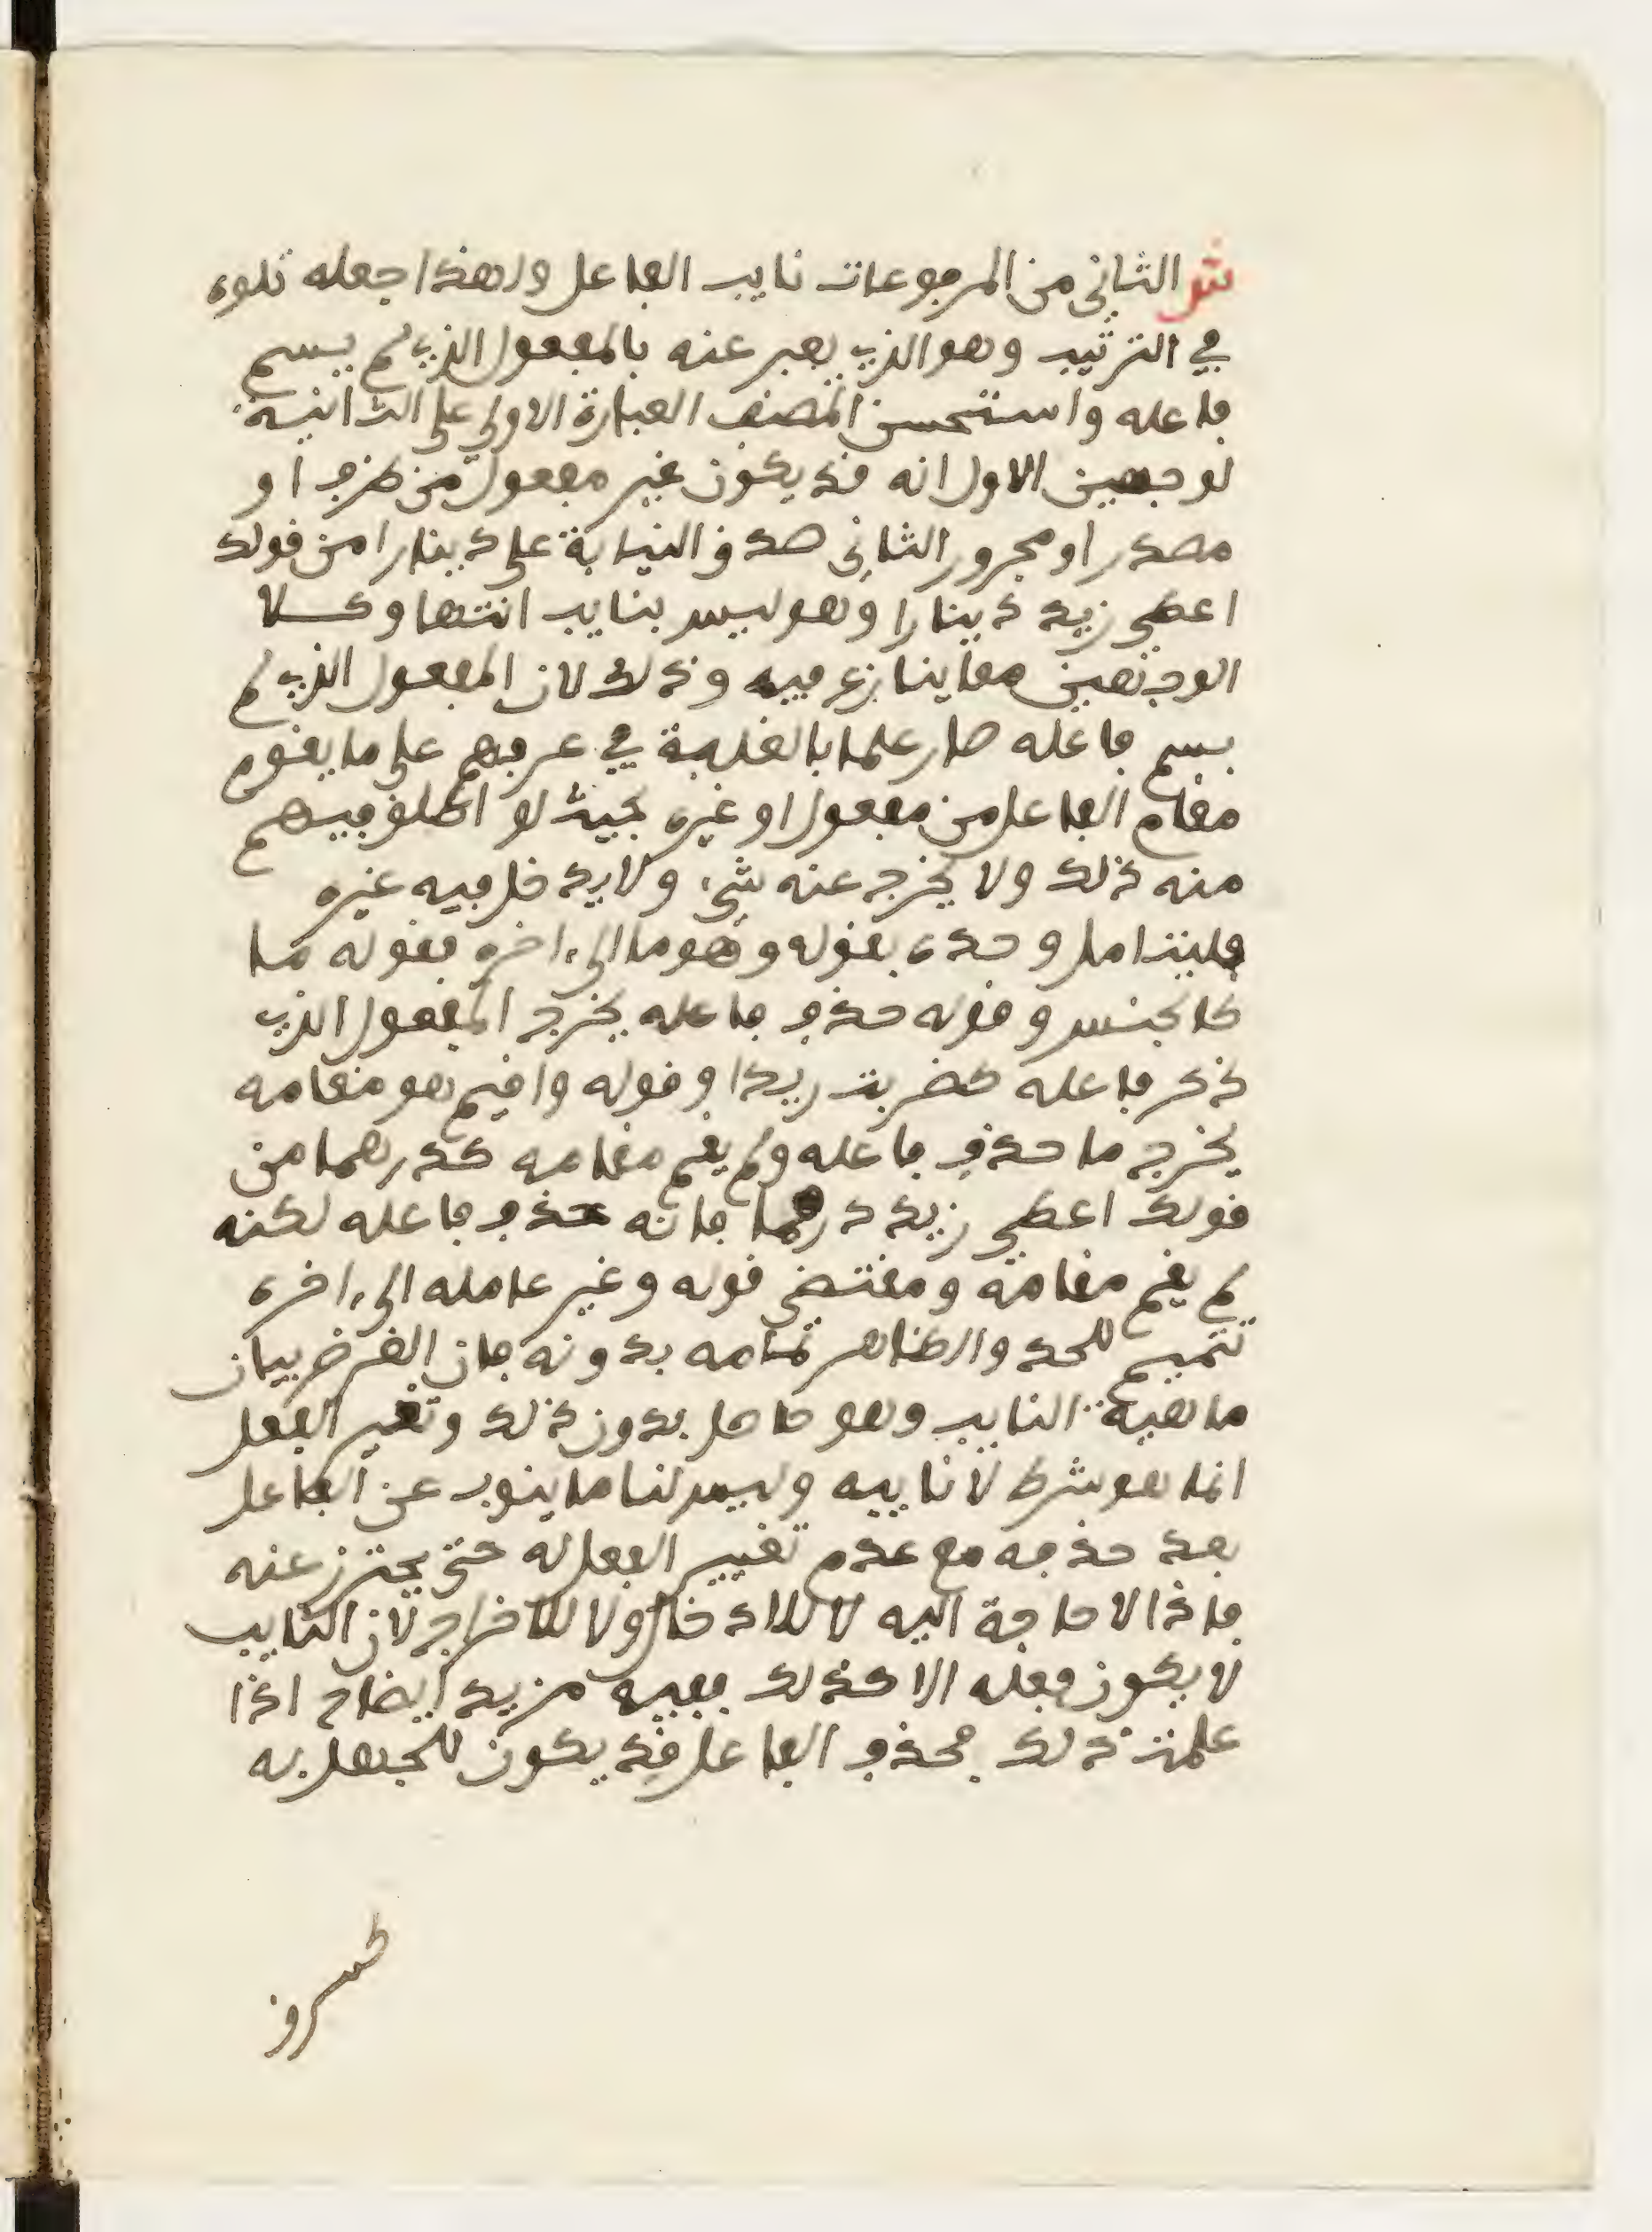 ش الثاني من المرفوعات نايب الفاعل ولهذا جعله تلوه
في الترتيب وهو الذي يعبر عنه بالمفعول الذي لم يسم
فاعله واستحسن المصنف العبارة الاولى على الثانية
لوجهين الاول انه قد يكون غير مفعول من ظرف او
مصدر او مجرور الثاني صدق النيابة على دينارا من قولك
اعطي زيد دينارا وهو ليس بنايب انتها وكلا
الوجهين مما ينازع فيه وذلك لان المفعول الذي لم
يسم فاعله صار علما بالغلبة في عرفهم على ما يقوم
مقام الفاعل من مفعول او غيره بحيث لو اطلق فيهم
منه ذلك ولا يخرج عنه شيء ولا يدخل فيه غيره
فليتامل وحده بقوله وهو ما الى ءاخره فقوله ما
كالجنس وقوله حذف فاعله يخرج المفعول الذي
ذكر فاعله كضربت زيدا وقوله واقيم هو مقامه
يخرج ما حذف فاعله ولم يقم مقامه كدرهما من
قولك اعطي زيد درهما فانه حذف فاعله لكنه
لم يقم مقامه ومقتضى قوله وغير عامله الى ءاخره
تتميم للحد والظاهر تمامه بدونه فان الغرض بيان
ماهية النايب وهو حاصل بدون ذلك وتغيير الفعل
انما هو شرط لانابيه وليس لنا ما ينوب عن الفاعل
بعد حذفه مع عدم تغيير الفعل له حتى يحترز عنه
فاذا لا حاجة اليه لا للادخال ولا للاخراج لان النايب
لا يكون فعله الا كذلك ففيه مزيد ايضاح اذا
علمت ذلك فحذف الفاعل قد يكون للجهل به